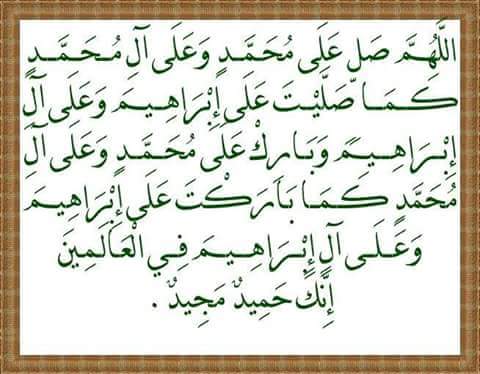 اللَّهُمَّ صَلِ عَلَى مُحَمَّدٍ وَعَلَى آلِ مُحَمَّدٍ
كَمَا صَّلَّيْتَ عَلَى إِبْرَاهِيمَ وَعَلَى آلِ
إِبْرَاهِيمَ وَبَارِكْ عَلَى مُحَمَّدٍ وَعَلَى آلِ
مُحَمَّدٍ كَمَا بَارَكْتَ عَلَى إِبْرَاهِيمَ
وَعَلَى آلِ إِبْرَاهِيمَ فِي الْعَالَمِينَ
إِنَّكَ حَمِيدٌ مَجِيدٌ .